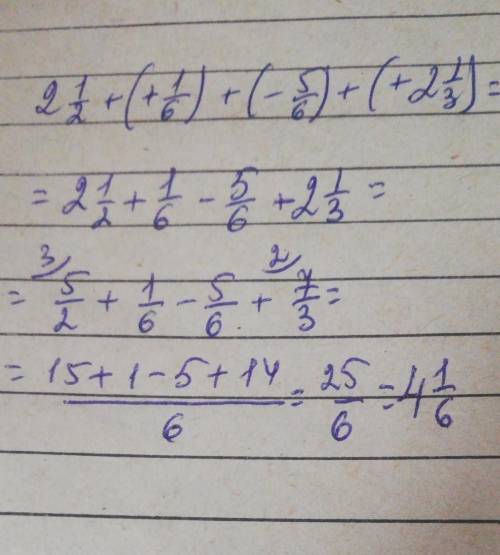 2 1/2 + (+1/6) + (-5/6) + (+2 1/3) =
= 2 1/2 + 1/6 - 5/6 + 2 1/3 =
= 3) 5/2 + 1/6 - 5/6 + 2) 7/3 =
= (15+1-5+14)/6 = 25/6 = 4 1/6